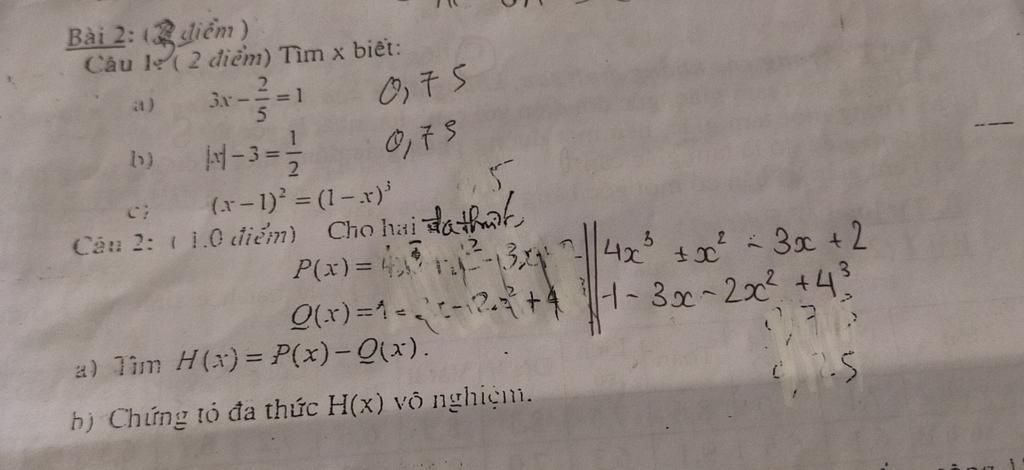 Bài 2: (3 điểm)
Câu 1: ( 2 điểm) Tìm x biết:
a) 3x − 2/5 = 1 0,75
b) |x| − 3 = 1/2 0,75
c) (x − 1)² = (1 − x)³ ,5
Câu 2: ( 1.0 điểm) Cho hai đa thức
P(x) = 4x³ ± x² − 3x + 2
Q(x) = -1 − 3x − 2x² + 4³
a) Tìm H(x) = P(x) − Q(x).
b) Chứng tỏ đa thức H(x) vô nghiệm.